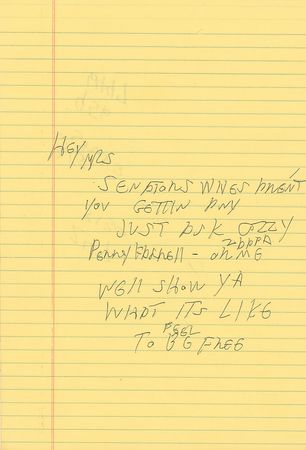 HEY MRS
SENATORS WIVES ARENT
YOU GETTIN ANY
JUST ASK OZZY
ZAPPA
PERRY FARRELL - OR ME
WELL SHOW YA
WHAT ITS LIKE
FEEL
TO BE FREE